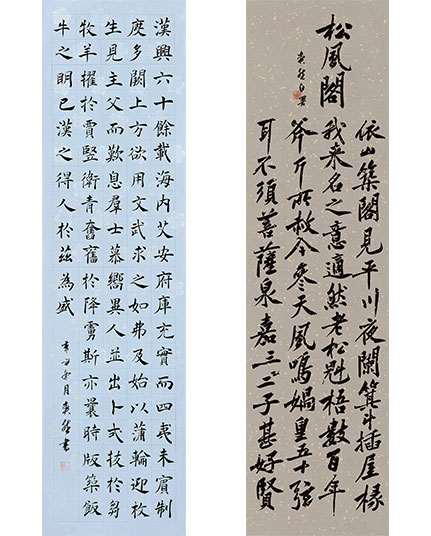 漢興六十餘載海内艾安府庫充實而四夷未賓制
度多闕上方欲用文武求之如弗及始以蒲輪迎枚
生見主父而歎息群士慕嚮異人並出卜式拔於芻
牧羊擢於賈豎衛青奮舊於降虜斯亦曩時版築飯
牛之明已漢之得人於茲為盛
松風閣
依山築閣見平川夜闌箕斗插屋椽
我来名之意適然老松魁梧數百年
斧斤所赦今參天風鳴媧皇五十弦
耳不須菩薩泉嘉三二子甚好賢